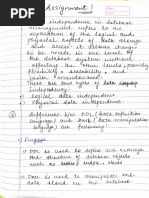 Assignment 1
independence in database
management refers to the
separation of the logical and
physical aspects of data storage
and access. It allows changes
to be made in one level of
the database system without
affecting the other levels, providing
flexibility, scalability, and
easier maintenance.
There are two types of data
independence:
logical data independence
Physical data independence
Difference b/w DDL (data definition
language) and DML (data manipulation
language) are following:
Purpose
DDL is used to define and manage
the structure of database objects
such as tables, index,
DML is used to manipulate the
data stored in the database